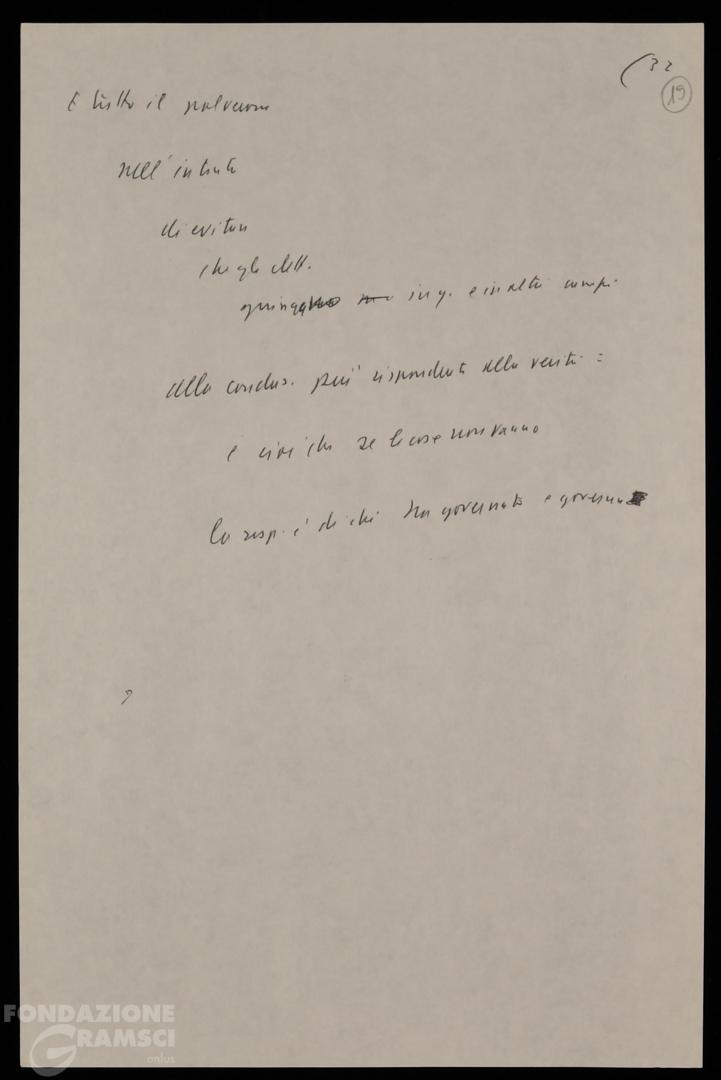 (32
19
È tutto il polverone
nell'intento
di evitare
che gli elett.
giungano in q. e in altri campi
alla conclus. più rispondente alla verità =
è cioè che se le cose non vanno
la resp. è di chi ha governato e governa
?
FONDAZIONE
GRAMSCI
onlus